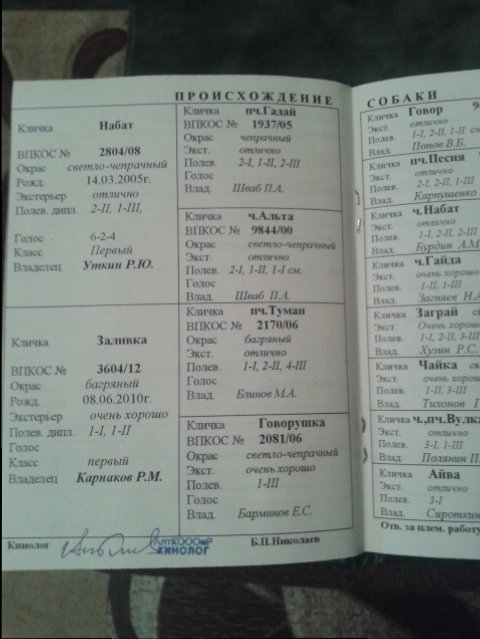 ПРОИСХОЖДЕНИЕ СОБАКИ
Кличка Набат
ВПКОС № 2804/08
Окрас светло-чепрачный
Рожд. 14.03.2005г.
Экстерьер отлично
Полев. дипл. 2-II, 1-III,
Голос 6-2-4
Класс Первый
Владелец Уткин Р.Ю.
Кличка Заливка
ВПКОС № 3604/12
Окрас багряный
Рожд. 08.06.2010г.
Экстерьер очень хорошо
Полев. дипл. 1-I, 1-II
Голос
Класс первый
Владелец Карнаков Р.М.
Кличка пч.Гадай
ВПКОС № 1937/05
Окрас чепрачный
Экст. отлично
Полев. 2-I, 1-II, 2-III
Голос
Влад. Шваб П.А.
Кличка ч.Альта
ВПКОС № 9844/00
Окрас светло-чепрачный
Экст. отлично
Полев. 2-I, 1-II, 1-I см.
Голос
Влад. Шваб П.А.
Кличка пч.Туман
ВПКОС № 2170/06
Окрас багряный
Экст. отлично
Полев. 1-I, 2-II, 4-III
Голос
Влад. Блинов М.А.
Кличка Говорушка
ВПКОС № 2081/06
Окрас светло-чепрачный
Экст. очень хорошо
Полев. 1-III
Голос
Влад. Барминов Е.С.
Кличка Говор
Экст. отлично
Полев. 1-I, 2-II, 1-II
Влад. Попов В.Б.
Кличка пч.Песня
Экст. отлично
Полев. 2-I, 2-II, 1-III
Влад. Карпушенко
Кличка ч.Набат
Экст. отлично
Полев. 1-I, 2-II, 2-III
Влад. Бурдин А.М
Кличка ч.Гайда
Экст. очень хорошо
Полев. 1-II, 1-III
Влад. Загняев Н.А
Кличка Заграй
Экст. Очень хорошо
Полев. 1-I, 2-II, 3-III
Влад. Хупин Р.С.
Кличка Чайка
Экст. очень хорошо
Полев. 1-II, 3-III
Влад. Тихонов
Кличка ч.,пч.Вулка
Экст. отлично
Полев. 1-I, 2-II, 3-III
Влад. Полянин П.
Кличка Айва
Экст. отлично
Полев. 3-I
Влад. Сироткин
Кинолог КИНОЛОГ Б.П.Николаев
Отв. за плем. работу